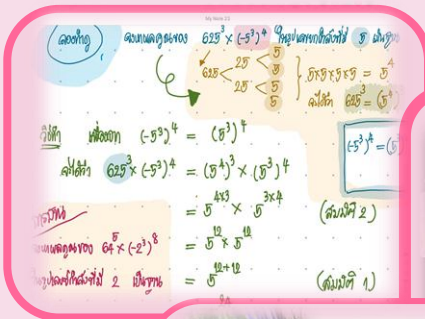 My Note 23
ลองทำดู จงหาผลคูณของ 625³ × (-5³)⁴ ในรูปเลขยกกำลังที่มี 5 เป็นฐาน
625 25 5 5 25 5 5 } 5×5×5×5 = 5⁴
จะได้ว่า 625³ = (5⁴)
วิธีทำ เนื่องจาก (-5³)⁴ = (5³)⁴
(-5³)⁴ = (5
จะได้ว่า 625³ × (-5³)⁴ = (5⁴)³ × (5³)⁴
= 5⁴ˣ³ × 5³ˣ⁴ (สมบัติ 2)
= 5¹² × 5¹²
= 5¹²⁺¹² (สมบัติ 1)
หาผลคูณของ 64⁵ × (-2³)⁸
กำลังที่มี 2 เป็นฐาน